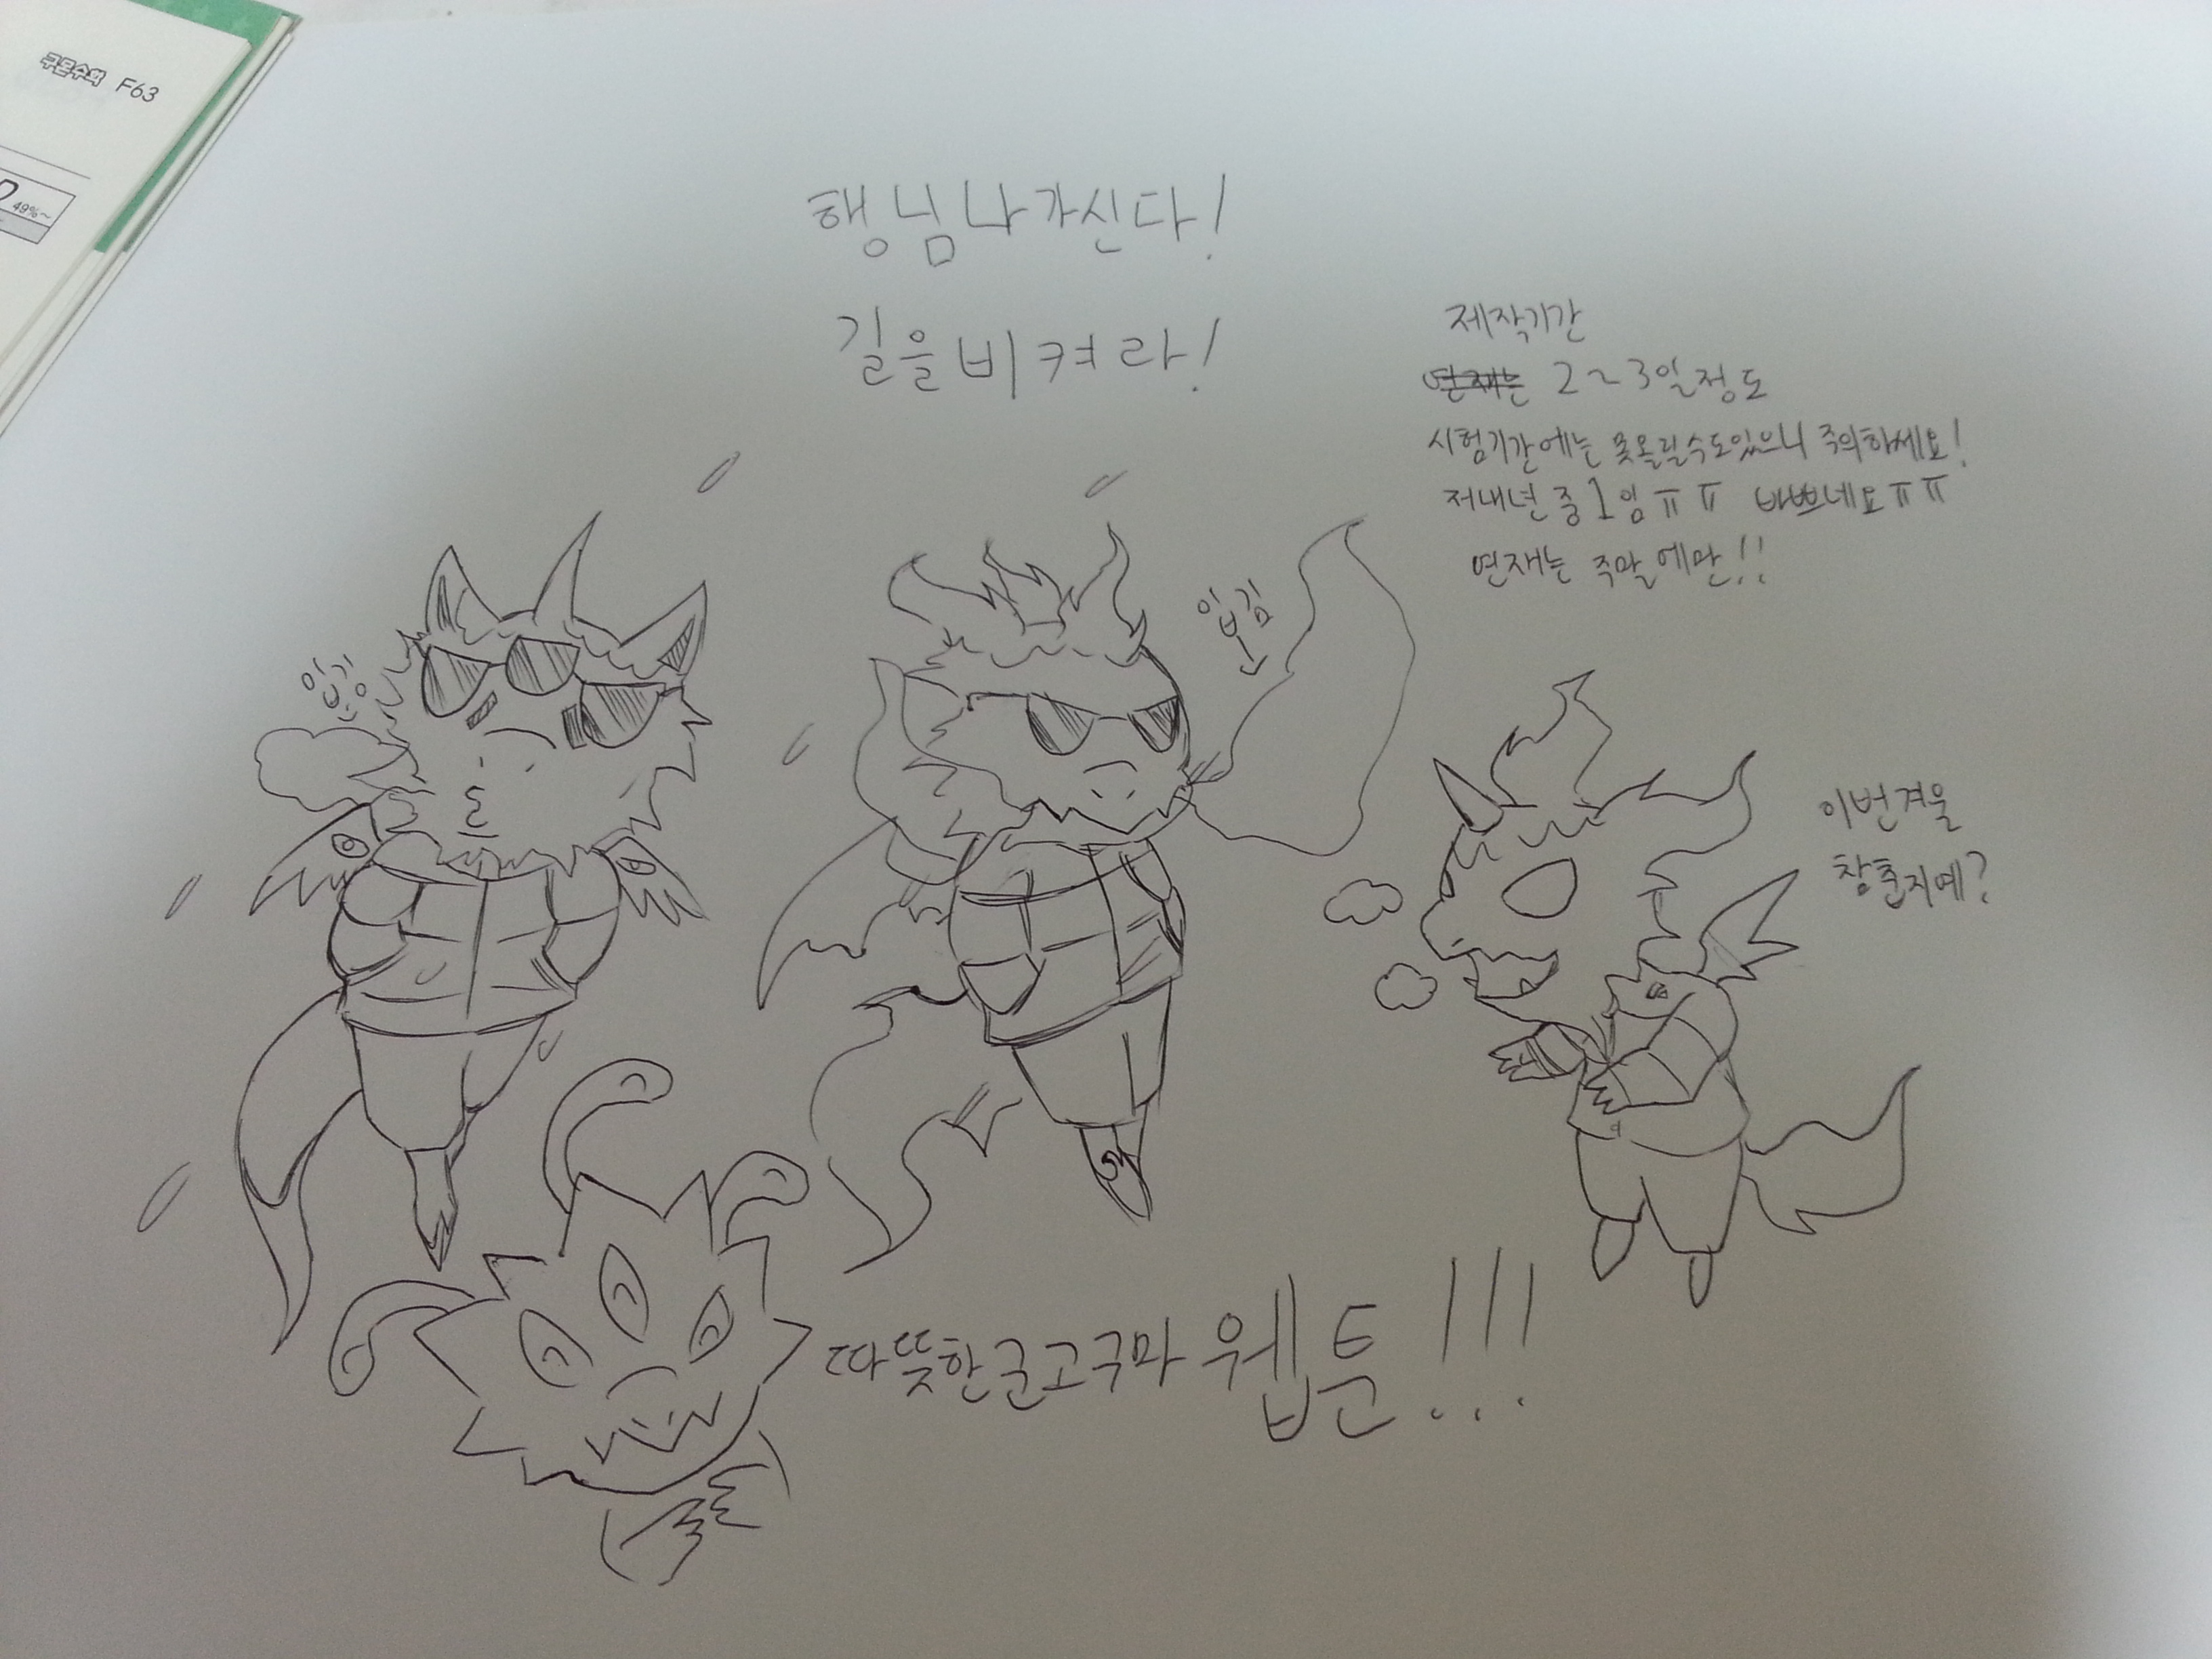 구몬수학 F63
D 49%~
행님나가신다!
길을비켜라!
제작기간
연재는 2~3일정도
시험기간에는 못올릴수도있으니 주의하세요!
저내년중1임ㅠㅠ 바쁘네요ㅠㅠ
연재는 주말에만!!
입김
입김
이번겨울
참춥지예?
따뜻한군고구마 웹툰!!!